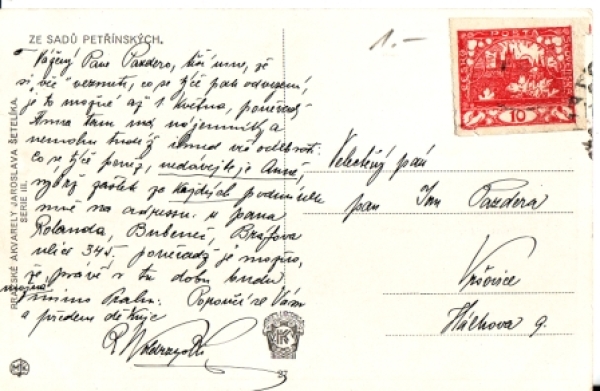 ZE SADŮ PETŘÍNSKÝCH.
PRAŽSKÉ AKVARELY JAROSLAVA ŠETELÍKA.
SERIE III.
Vážený Pane Pazdero, těší mne, že
si věc vezmete, co se týče pak odvození,
je to možné až 1 května, poněvadž
Anna tam má nájemníky a
nemohu tudíž ihned vše odebrati.
Co se týče peněz, nedávejte je Anně,
nýbrž zašlete za každých podmínek
mně na adressu u pana
Rolanda, Bubeneč, Bráfova
ulice 345, poněvadž je možno,
že právě v tu dobu budu
možná
mimo Prahu. Poroučí se Vám
a předem děkuje
1.-
POŠTA
ČESKO
SLOVENSKÁ
10
Velectěný pán
pan Jan Pazdera
Vršovice
Hálkova 9.
K
MK